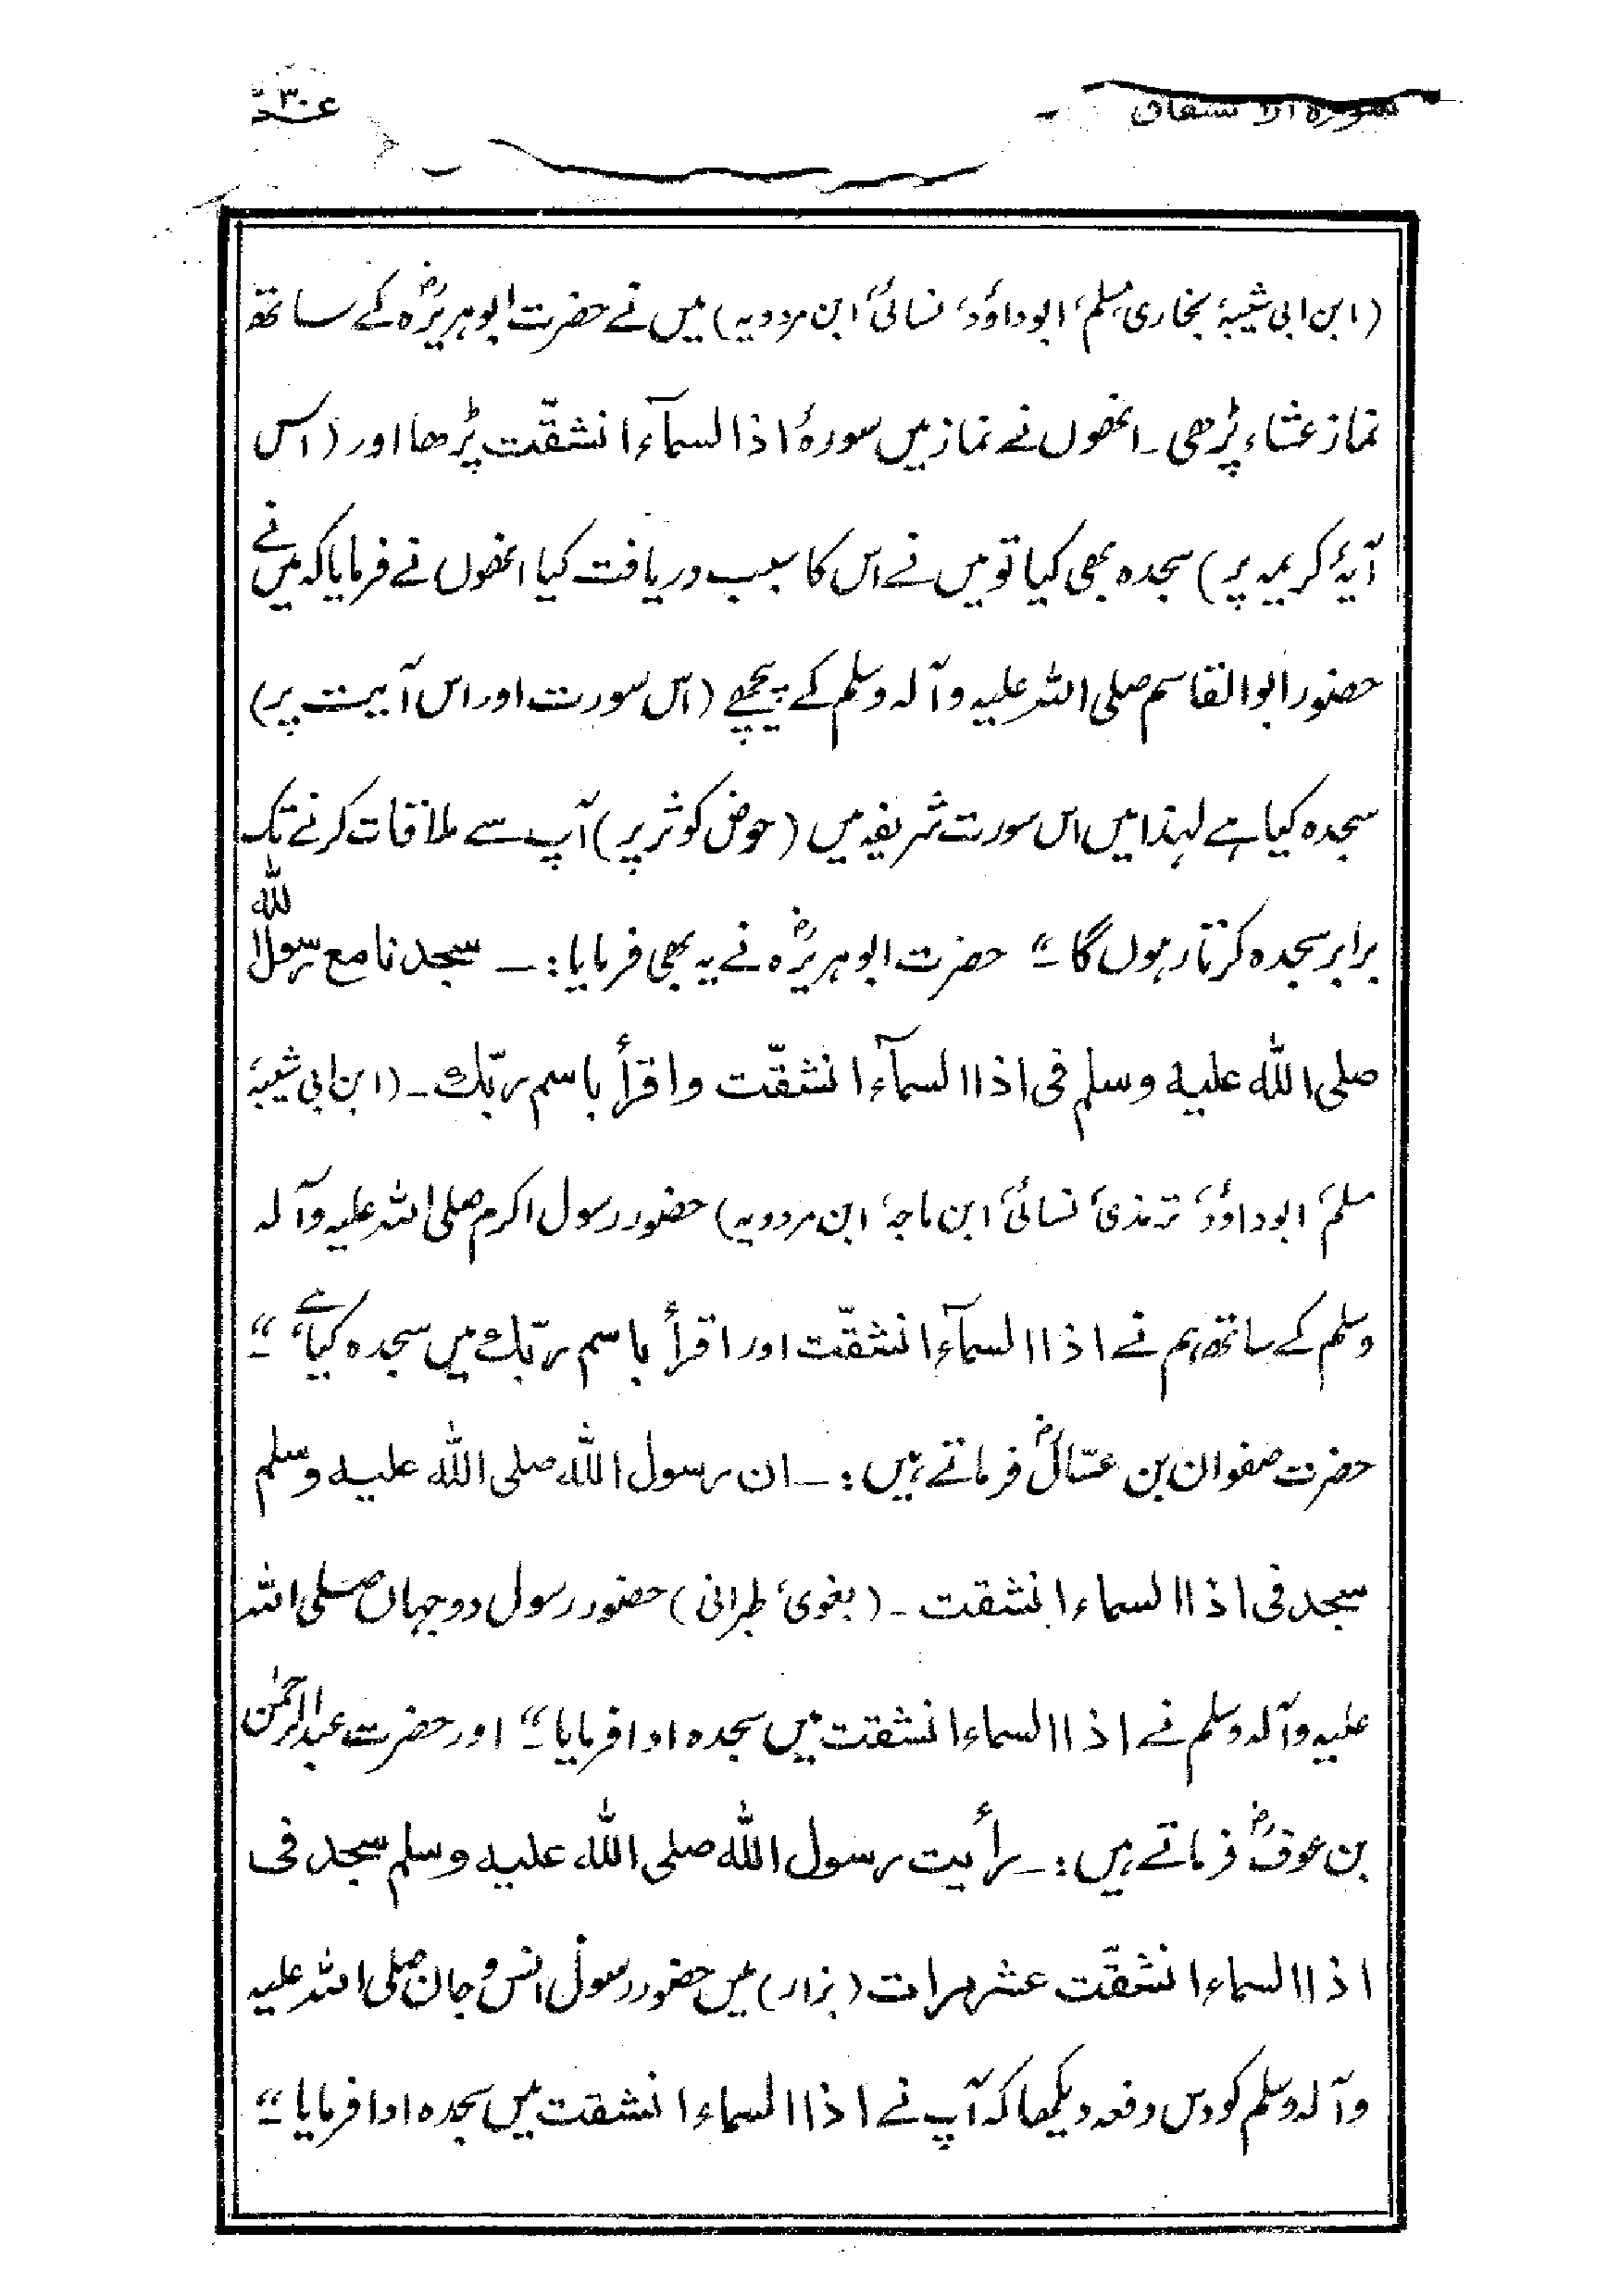 سورہ الانشقاق عمّ ۳۰
(ابن ابی شیبہ، بخاری، مسلم، ابوداؤد، نسائی، ابن مردویہ) میں نے حضرت ابوہریرہؓ کے ساتھ
نماز عشاء پڑھی۔ انھوں نے نماز میں سورۂ اذا السمآء انشقّت پڑھا اور (اس
آیۂ کریمہ پر) سجدہ بھی کیا تو میں نے اس کا سبب دریافت کیا انھوں نے فرمایا کہ میں نے
حضور ابوالقاسم صلی اللہ علیہ وآلہ وسلم کے پیچھے (اس سورت اور اس آیت پر)
سجدہ کیا ہے لہذا میں اس سورت شریفہ میں (حوض کوثر پر) آپ سے ملاقات کرنے تک
برابر سجدہ کرتا رہوں گا۔“ حضرت ابوہریرہؓ نے یہ بھی فرمایا:۔ سجدنا مع رسول اللہ
صلی اللہ علیہ وسلم فی اذا السمآء انشقّت واقرأ باسم ربّک۔ (ابن ابی شیبہ،
مسلم، ابوداؤد، ترمذی، نسائی، ابن ماجہ، ابن مردویہ) حضور رسول اکرم صلی اللہ علیہ وآلہ
وسلم کے ساتھ ہم نے اذا السمآء انشقّت اور اقرأ باسم ربّک میں سجدہ کیا ہے۔“
حضرت صفوان بن عسّالؓ فرماتے ہیں:۔ ان رسول اللہ صلی اللہ علیہ وسلم
سجد فی اذا السماء انشقت۔ (بغوی، طبرانی) حضور رسول دوجہاں صلی اللہ
علیہ وآلہ وسلم نے اذا السماء انشقت میں سجدہ ادا فرمایا۔“ اور حضرت عبدالرحمٰن
بن عوفؓ فرماتے ہیں:۔ رأیت رسول اللہ صلی اللہ علیہ وسلم سجد فی
اذا السماء انشقّت عشر مرات (بزار) میں حضور رسول انس و جان صلی اللہ علیہ
وآلہ وسلم کو دس دفعہ دیکھا کہ آپ نے اذا السماء انشقت میں سجدہ ادا فرمایا۔“